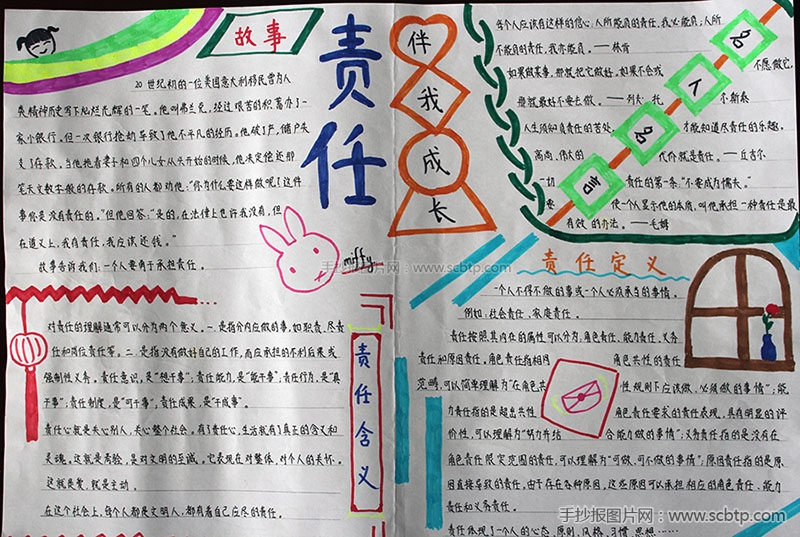 故事
20世纪初的一位美国意大利移民曾为人
类精神历史写下灿烂光辉的一笔。他叫弗兰克,经过艰苦的积蓄办了一
家小银行。但一次银行抢劫导致了他不平凡的经历。他破了产,储户失
去了存款。当他拖着妻子和四个儿女从头开始的时候,他决定偿还那
笔天文数字般的存款。所有的人都劝他:“你为什么要这样做呢?这件
事你是没有责任的。”但他回答:“是的,在法律上也许我没有,但
在道义上,我有责任,我应该还钱。”
故事告诉我们:一个人要勇于承担责任。
责任
伴我成长
miffy
手抄报图片网:www.scbtp.com
对责任的理解通常可以分为两个意义。一.是指分内应做的事,如职责,尽责
任和岗位责任等。二.是指没有做好自己的工作,而应承担的不利后果或
强制性义务。责任意识,是“想干事”;责任能力,是“能干事”,责任行为,是“真
干事”;责任制度,是“可干事”,责任成果,是“干成事”。
责任心就是关心别人,关心整个社会。有了责任心,生活就有了真正的含义和
灵魂。这就是考验,是对文明的至诚。它表现在对整体,对个人的关怀。
这就是爱,就是主动。
在这个社会上,每个人都是文明人,都有着自己应尽的责任。
责任含义
每个人应该有这样的信心,人所能负的责任,我必能负;人所
不能负的责任,我亦能负。——林肯
如果做某事,那就把它做好,如果不会或
不愿做它,
那就最好不要去做。——列夫·托
尔斯泰
人生须知负责任的苦处,
才能知道尽责任的乐趣。
高尚,伟大的
代价就是责任。——丘吉尔
一切
责任的第一条:“不要成为懦夫。”
要
使一个人显示他的本质,叫他承担一种责任是最
有效的办法。——毛姆
名人名言
责任定义
一个人不得不做的事或一个人必须承当的事情。
例如,社会责任,家庭责任。
责任按照其内在的属性可以分为,角色责任,能力责任,义务
责任和原因责任。角色责任指相同
角色共性的责任
范畴,可以简单理解为“在角色共
性规则下应该做,必须做的事情”;能
力责任指的是超出共性
角色责任要求的责任表现,具有明显的评
价性,可以理解为“努力并结
合能力做的事情”;义务责任指的是没有在
角色责任限定范围的责任,可以理解为“可做,可不做的事情”;原因责任指的是原
因直接导致的责任,由于存在各种原因,这些原因可以承担相应的角色责任、能力
责任和义务责任。
责任体现了一个人的心态、原则、风格、习惯、思想……
手抄报图片网:www.scbtp.com